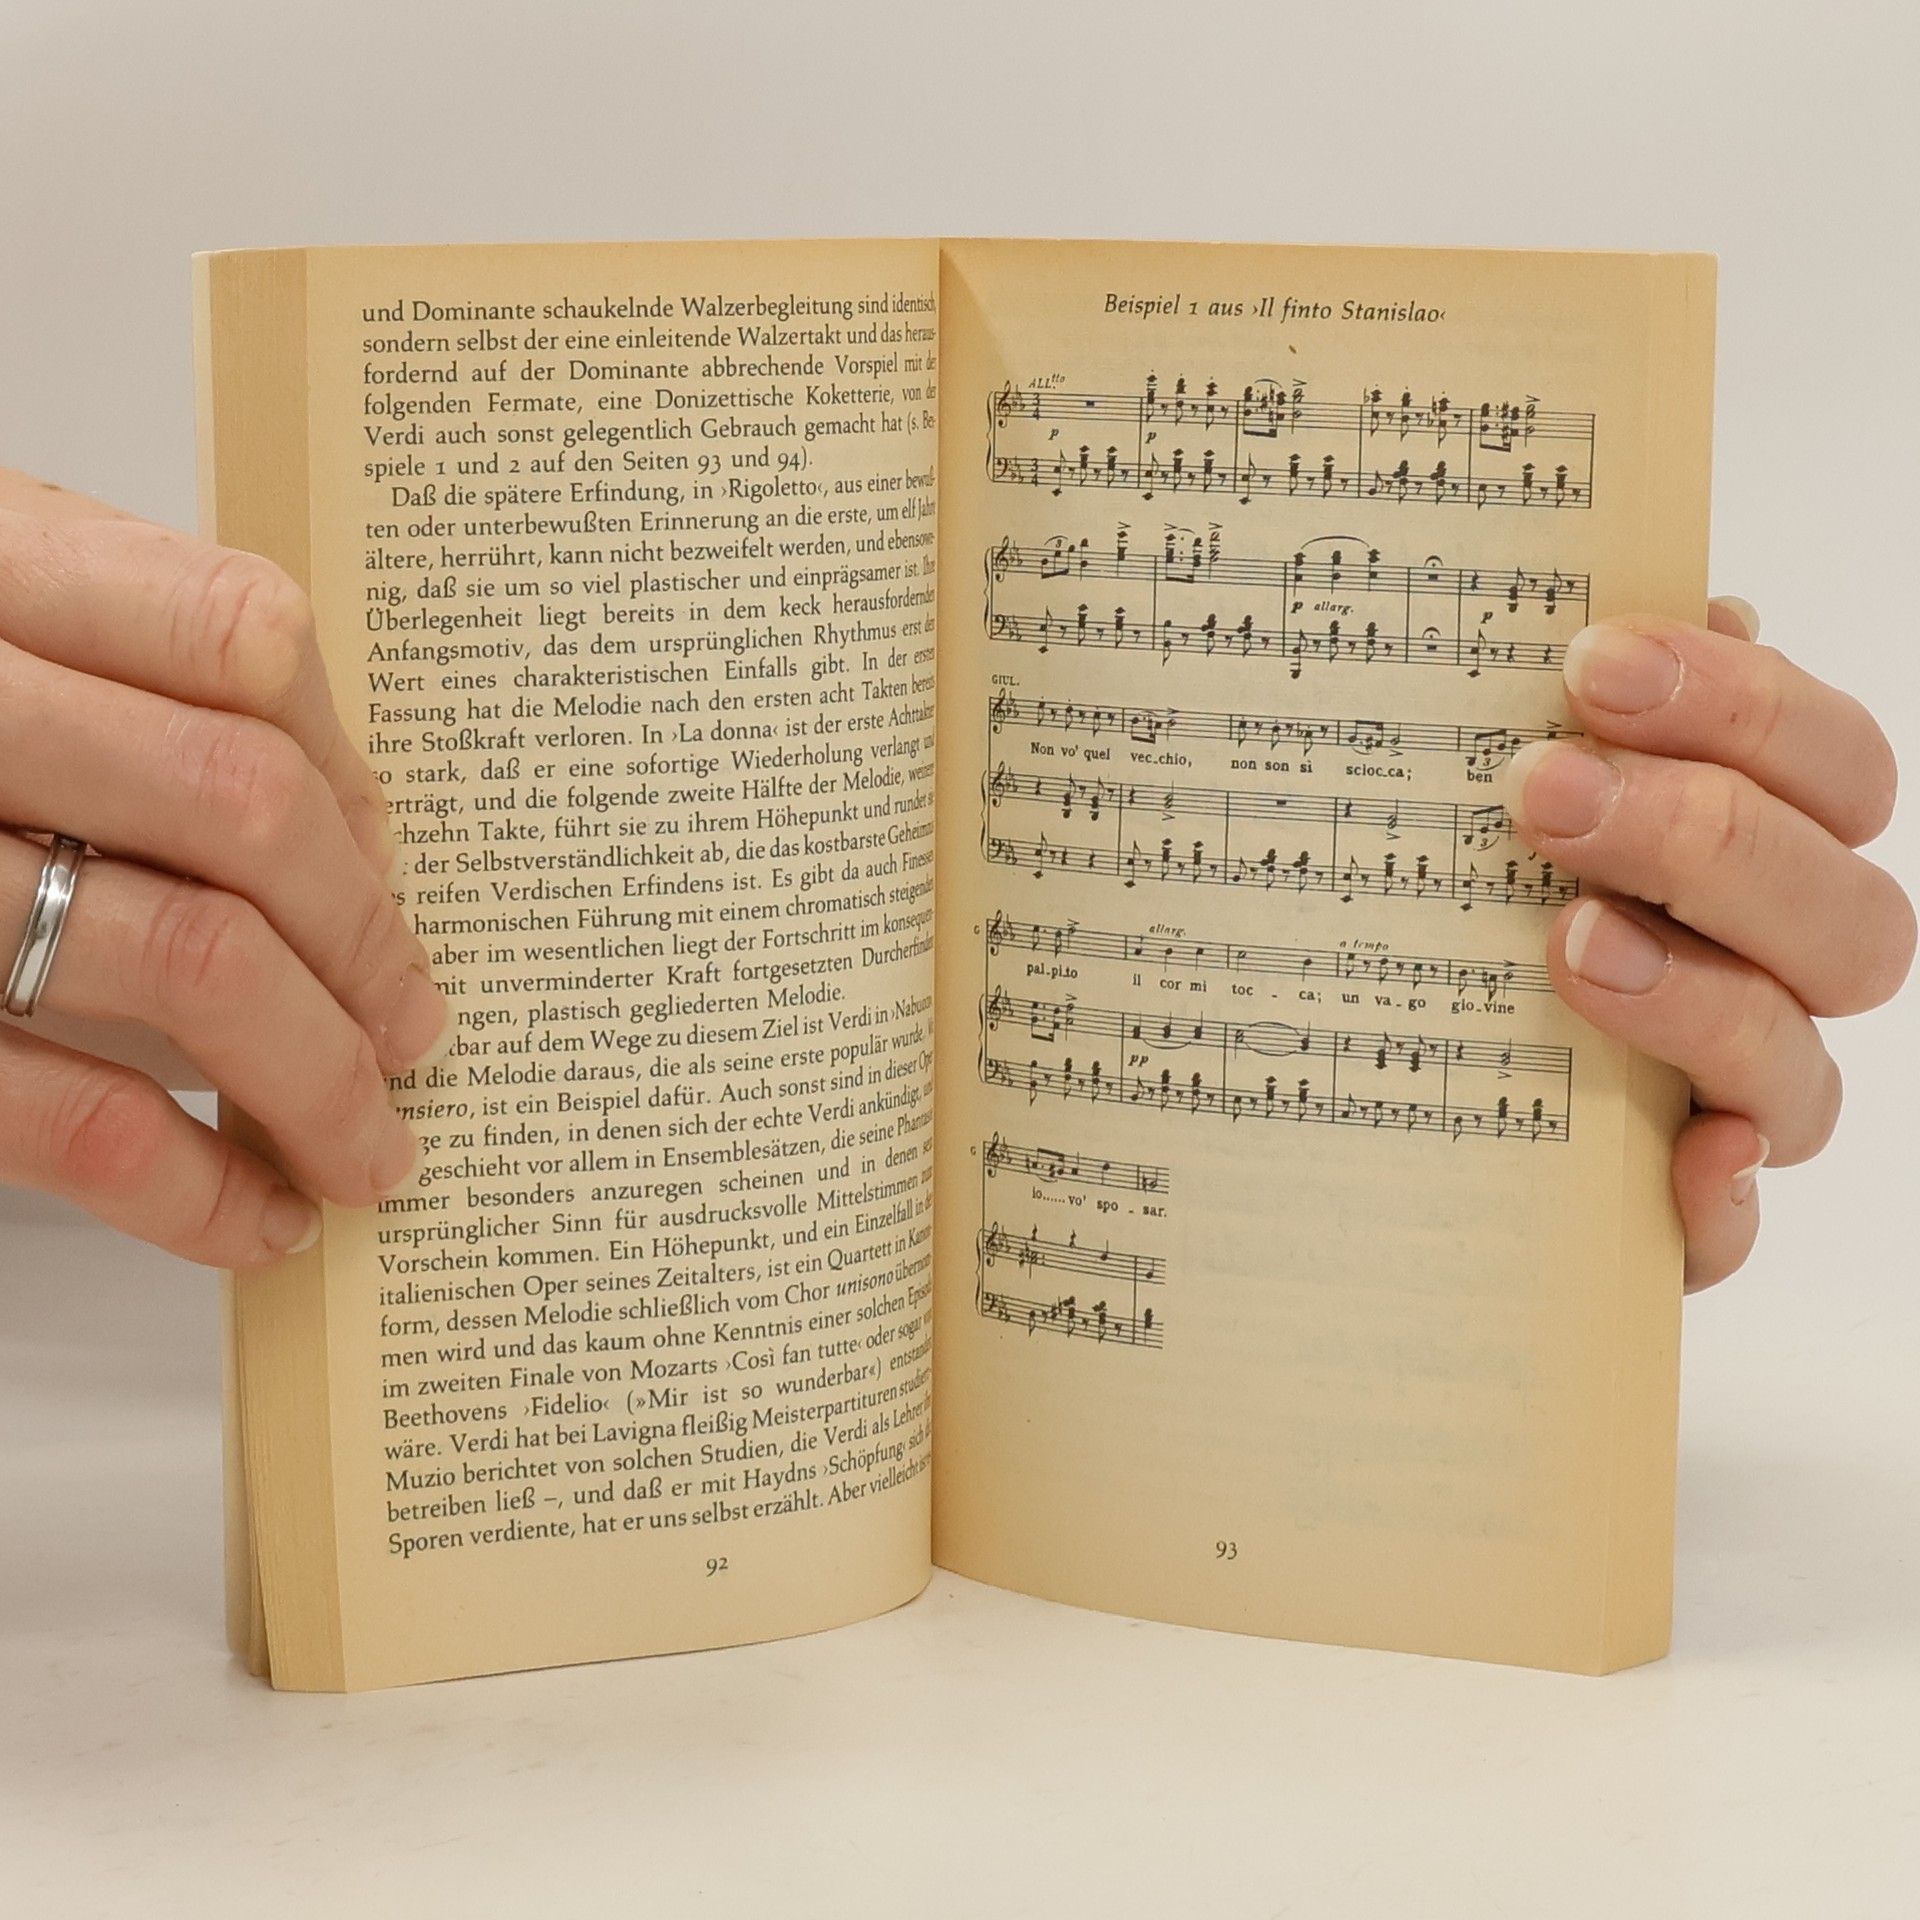 und Dominante schaukelnde Walzerbegleitung sind identisch,
sondern selbst der eine einleitende Walzertakt und das heraus-
fordernd auf der Dominante abbrechende Vorspiel mit der
folgenden Fermate, eine Donizettische Koketterie, von der
Verdi auch sonst gelegentlich Gebrauch gemacht hat (s. Bei-
spiele 1 und 2 auf den Seiten 93 und 94).
Daß die spätere Erfindung, in ›Rigoletto‹, aus einer bewuß-
ten oder unterbewußten Erinnerung an die erste, um elf Jahre
ältere, herrührt, kann nicht bezweifelt werden, und ebensowe-
nig, daß sie um so viel plastischer und einprägsamer ist. Ihre
Überlegenheit liegt bereits in dem keck herausfordernden
Anfangsmotiv, das dem ursprünglichen Rhythmus erst den
Wert eines charakteristischen Einfalls gibt. In der ersten
Fassung hat die Melodie nach den ersten acht Takten bereits
ihre Stoßkraft verloren. In ›La donna‹ ist der erste Achttakter
so stark, daß er eine sofortige Wiederholung verlangt und
erträgt, und die folgende zweite Hälfte der Melodie,
chzehn Takte, führt sie zu ihrem Höhepunkt und rundet
der Selbstverständlichkeit ab, die das kostbarste Geheimnis
reifen Verdischen Erfindens ist. Es gibt da auch Finessen
harmonischen Führung mit einem chromatisch steigenden
aber im wesentlichen liegt der Fortschritt im konsequen-
mit unverminderter Kraft fortgesetzten Durcherfinden
ngen, plastisch gegliederten Melodie.
tbar auf dem Wege zu diesem Ziel ist Verdi in ›Nabucco
und die Melodie daraus, die als seine erste populär wurde,
ensiero, ist ein Beispiel dafür. Auch sonst sind in dieser Oper
ge zu finden, in denen sich der echte Verdi ankündigt, und
geschieht vor allem in Ensemblesätzen, die seine Phantasie
immer besonders anzuregen scheinen und in denen sein
ursprünglicher Sinn für ausdrucksvolle Mittelstimmen zum
Vorschein kommen. Ein Höhepunkt, und ein Einzelfall in der
italienischen Oper seines Zeitalters, ist ein Quartett in Kanon-
form, dessen Melodie schließlich vom Chor unisono übernom-
men wird und das kaum ohne Kenntnis einer solchen Episode
im zweiten Finale von Mozarts ›Così fan tutte‹ oder sogar von
Beethovens ›Fidelio‹ (»Mir ist so wunderbar«) entstanden
wäre. Verdi hat bei Lavigna fleißig Meisterpartituren studiert
Muzio berichtet von solchen Studien, die Verdi als Lehrer ihn
betreiben ließ –, und daß er mit Haydns ›Schöpfung‹ sich die
Sporen verdiente, hat er uns selbst erzählt. Aber vielleicht
92
Beispiel 1 aus ›Il finto Stanislao‹
ALL.tto
3 4
p p
3 4
3
p allarg. p
GIUL.
Non vo' quel vec_chio, non son sì scioc_ca; ben
3
3
G allarg. a tempo
pal_pi_to il cor mi toc - ca; un va_go gio_vine
pp
G
io......vo' spo - sar.
93